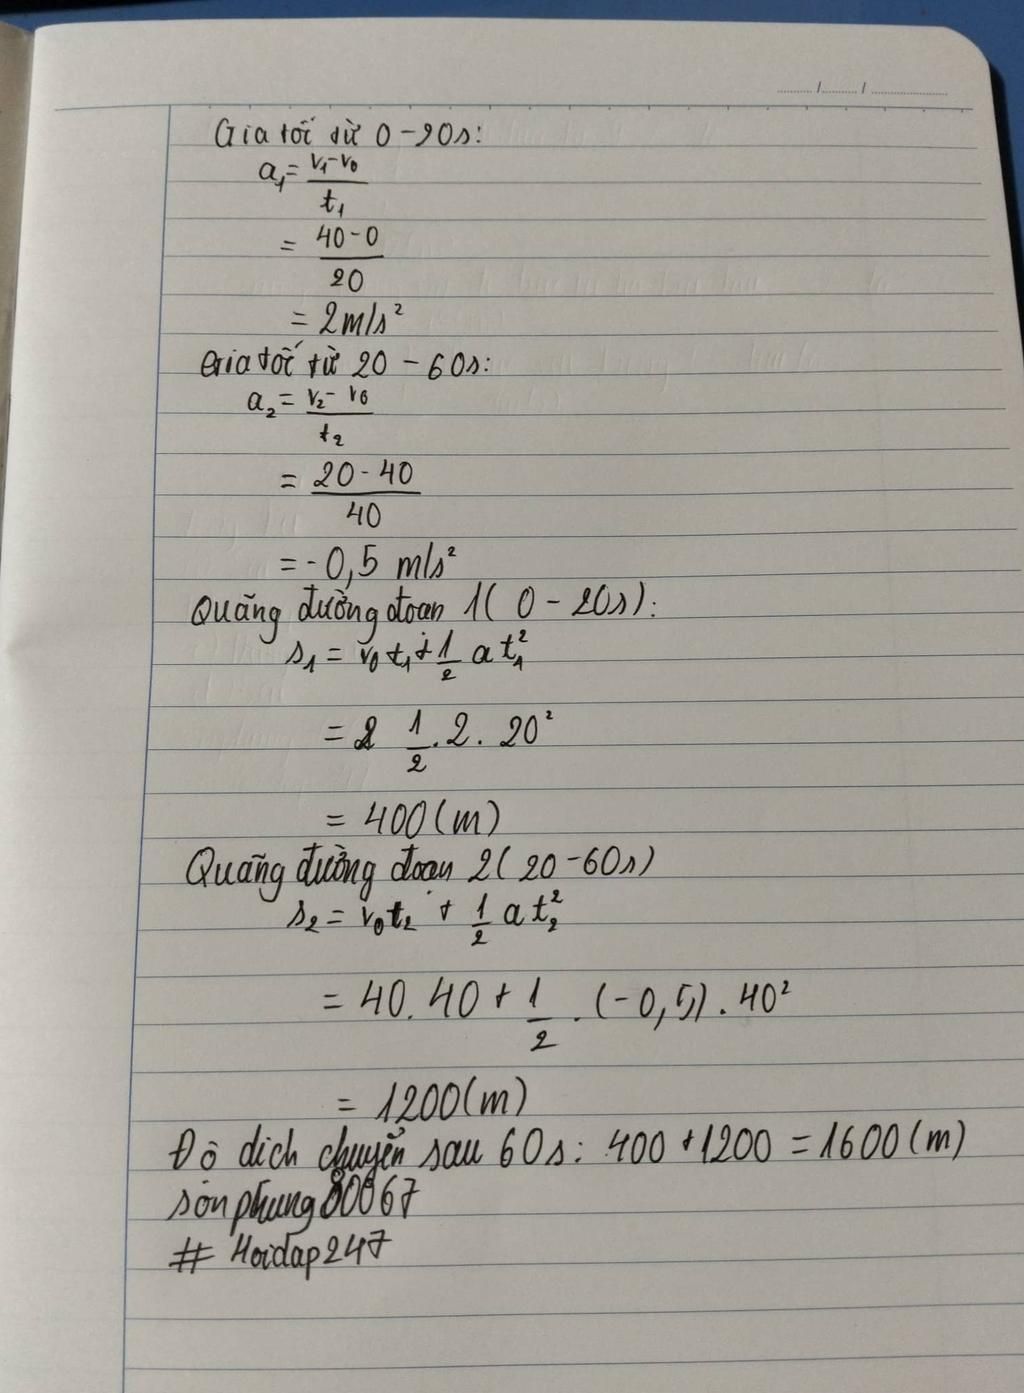 Gia tốc từ 0-20s:
a₁ = (v₁-v₀)/t₁
= (40-0)/20
= 2m/s²
Gia tốc từ 20-60s:
a₂ = (v₂-v₀)/t₂
= (20-40)/40
= -0,5 m/s²
Quãng đường đoạn 1(0-20s):
s₁ = v₀t₁ + 1/2 at₁²
= 1/2 . 2 . 20²
= 400(m)
Quãng đường đoạn 2(20-60s)
s₂ = v₀t₂ + 1/2 at₂²
= 40.40 + 1/2 . (-0,5) . 40²
= 1200(m)
Độ dịch chuyển sau 60s: 400+1200=1600(m)
sonphung80067
# Hoidap247